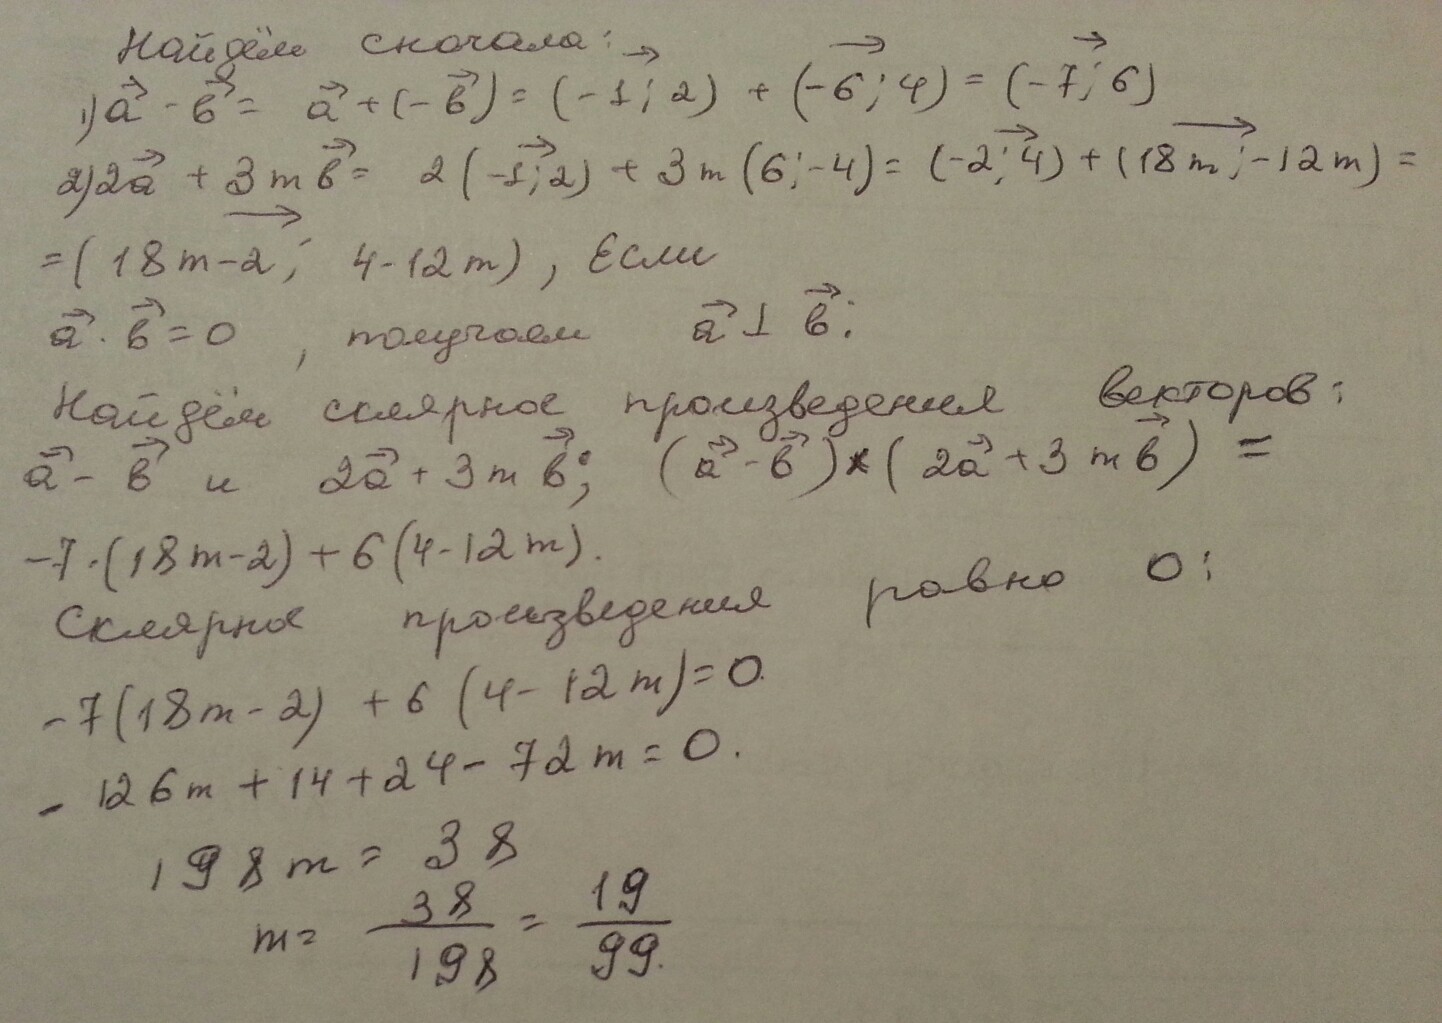 Найдём сначала:
1) a⃗ - в⃗ = a⃗ + (-в⃗) = (-1; 2) + (-6; 4) = (-7; 6)
2) 2a⃗ + 3mв⃗ = 2(-1; 2) + 3m(6; -4) = (-2; 4) + (18m; -12m) =
= (18m-2; 4-12m), Если
a⃗ · в⃗ = 0, получаем a⃗ ⊥ в⃗:
Найдём склярное произведения векторов:
a⃗ - в⃗ и 2a⃗ + 3mв⃗; (a⃗ - в⃗) × (2a⃗ + 3mв⃗) =
-7·(18m-2) + 6(4-12m).
Склярное произведения равно 0:
-7(18m-2) + 6(4-12m) = 0.
-126m + 14 + 24 - 72m = 0.
198m = 38
m = 38/198 = 19/99.